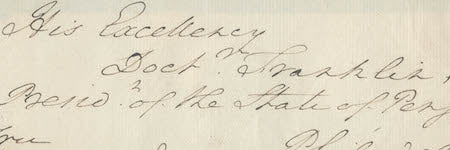 His Excellency
Doctr. Franklin,
Presidn. of the State of Pen